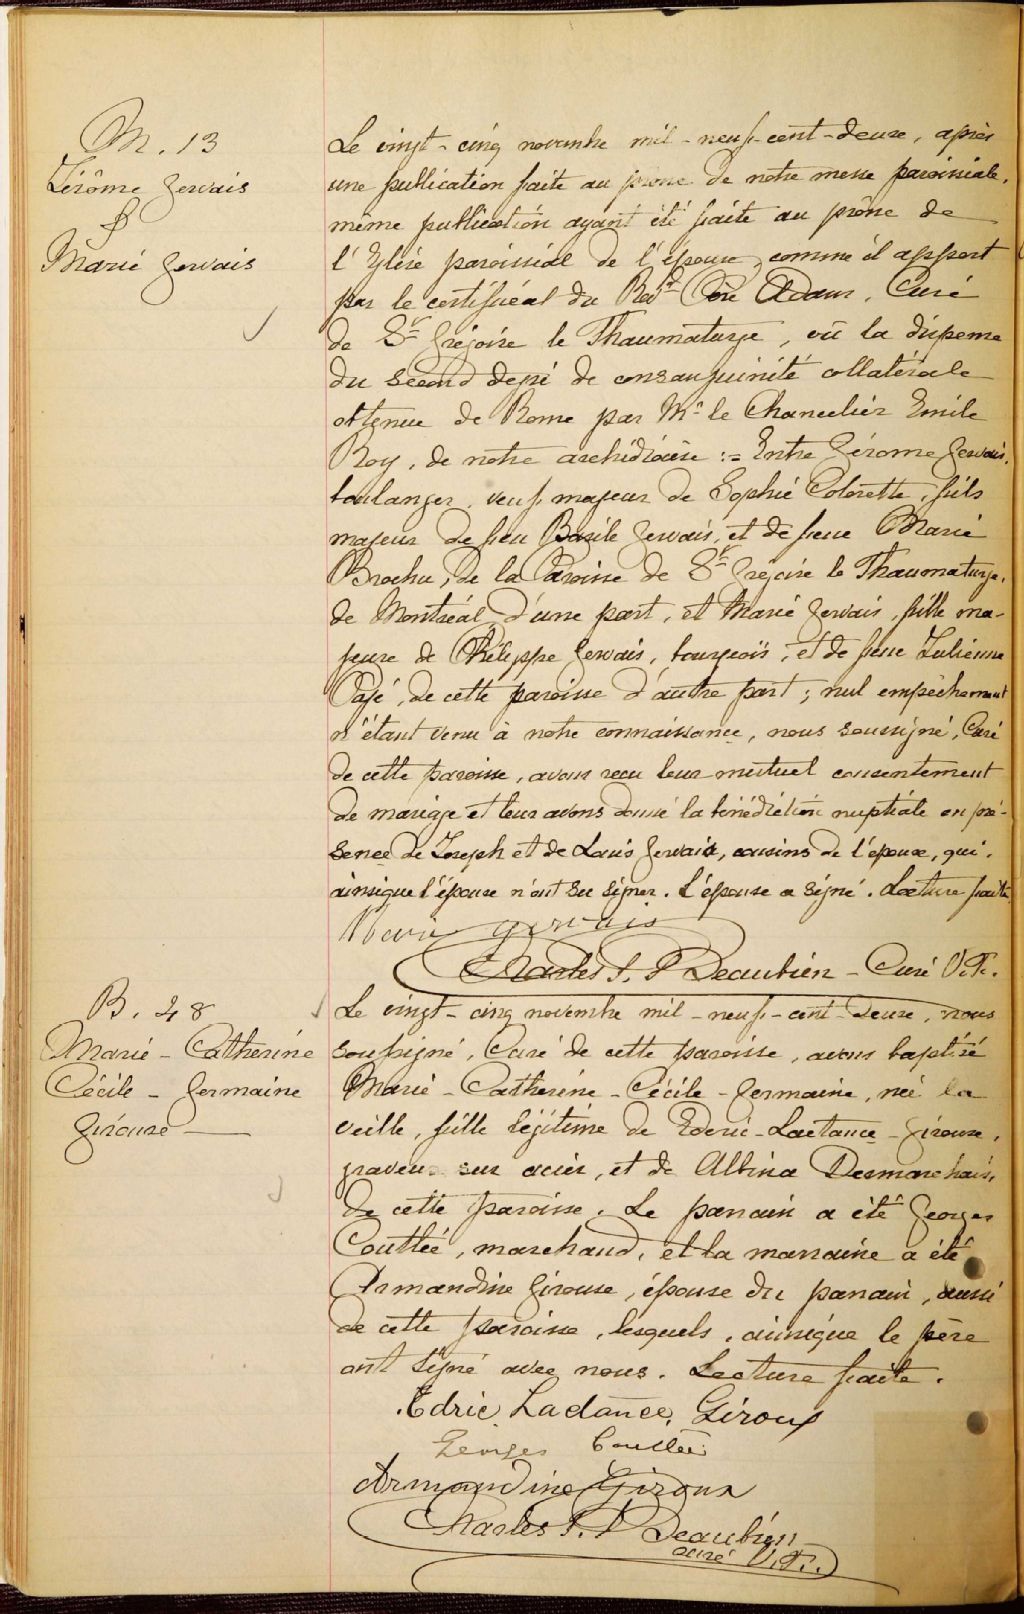 M. 13
Jérôme Gervais
&
Marie Gervais
Le vingt-cinq novembre mil-neuf-cent-deux, après
une publication faite au prône de notre messe paroissiale,
même publication ayant été faite au prône de
l'Eglise paroissial de l'épouse, comme il appert
par le certificat du Revd Père Adam, Curé
de St Grégoire le Thaumaturge, vû la dispense
du second degré de consanguinité collatérale
obtenue de Rome par Mr le Chancelier Emile
Roy, de notre archidiocèse := Entre Jérome Gervais,
boulanger, veuf majeur de Sophie Colorette, fils
majeur de feu Basile Gervais, et de feue Marie
Brochu, de la Paroisse de St Grégoire le Thaumaturge,
de Montréal d'une part, et Marie Gervais, fille ma-
jeure de Philippe Gervais, bourgeois, et de feue Julienne
Pagé, de cette paroisse d'autre part; nul empêchement
n'étant venu à notre connaissance, nous soussigné, Curé
de cette paroisse, avons reçu leur mutuel consentement
de mariage et leur avons donné la bénédiction nuptiale en pré-
sence de Joseph et de Louis Gervais, cousins de l'épouse, qui,
ainsique l'épouse n'ont su signer. L'épouse a signé. Lecture faite
Marie Gervais
Charles P. Beaubien - Curé V.F.
B. 48
Marie - Catherine
Cécile - Germaine
Girouse
Le vingt-cinq novembre mil-neuf-cent-deux, nous
soussigné, Curé de cette paroisse, avons baptisé
Marie - Catherine - Cécile - Germaine, née la
veille, fille légitime de Ederic-Lactance - Girouse,
graveur sur acier, et de Albina Desmarchais,
de cette paroisse. Le parrain a été Georges
Couttée, marchand, et la marraine a été
Armandine Girouse, épouse du parrain, aussi
de cette paroisse, lesquels, ainsique le père
ont signé avec nous. Lecture faite.
Edric Ladance Giroux
Georges Couttée
Armandine Giroux
Charles P. Beaubien
curé V.F.